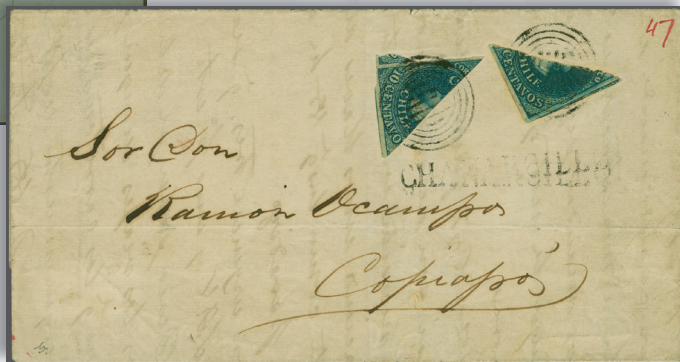 47
10 CENTAVO
CHILE
CHILE
CENTAVOS
CHAÑARCILLO
Sor Don
Ramon Ocampos
Copiapó